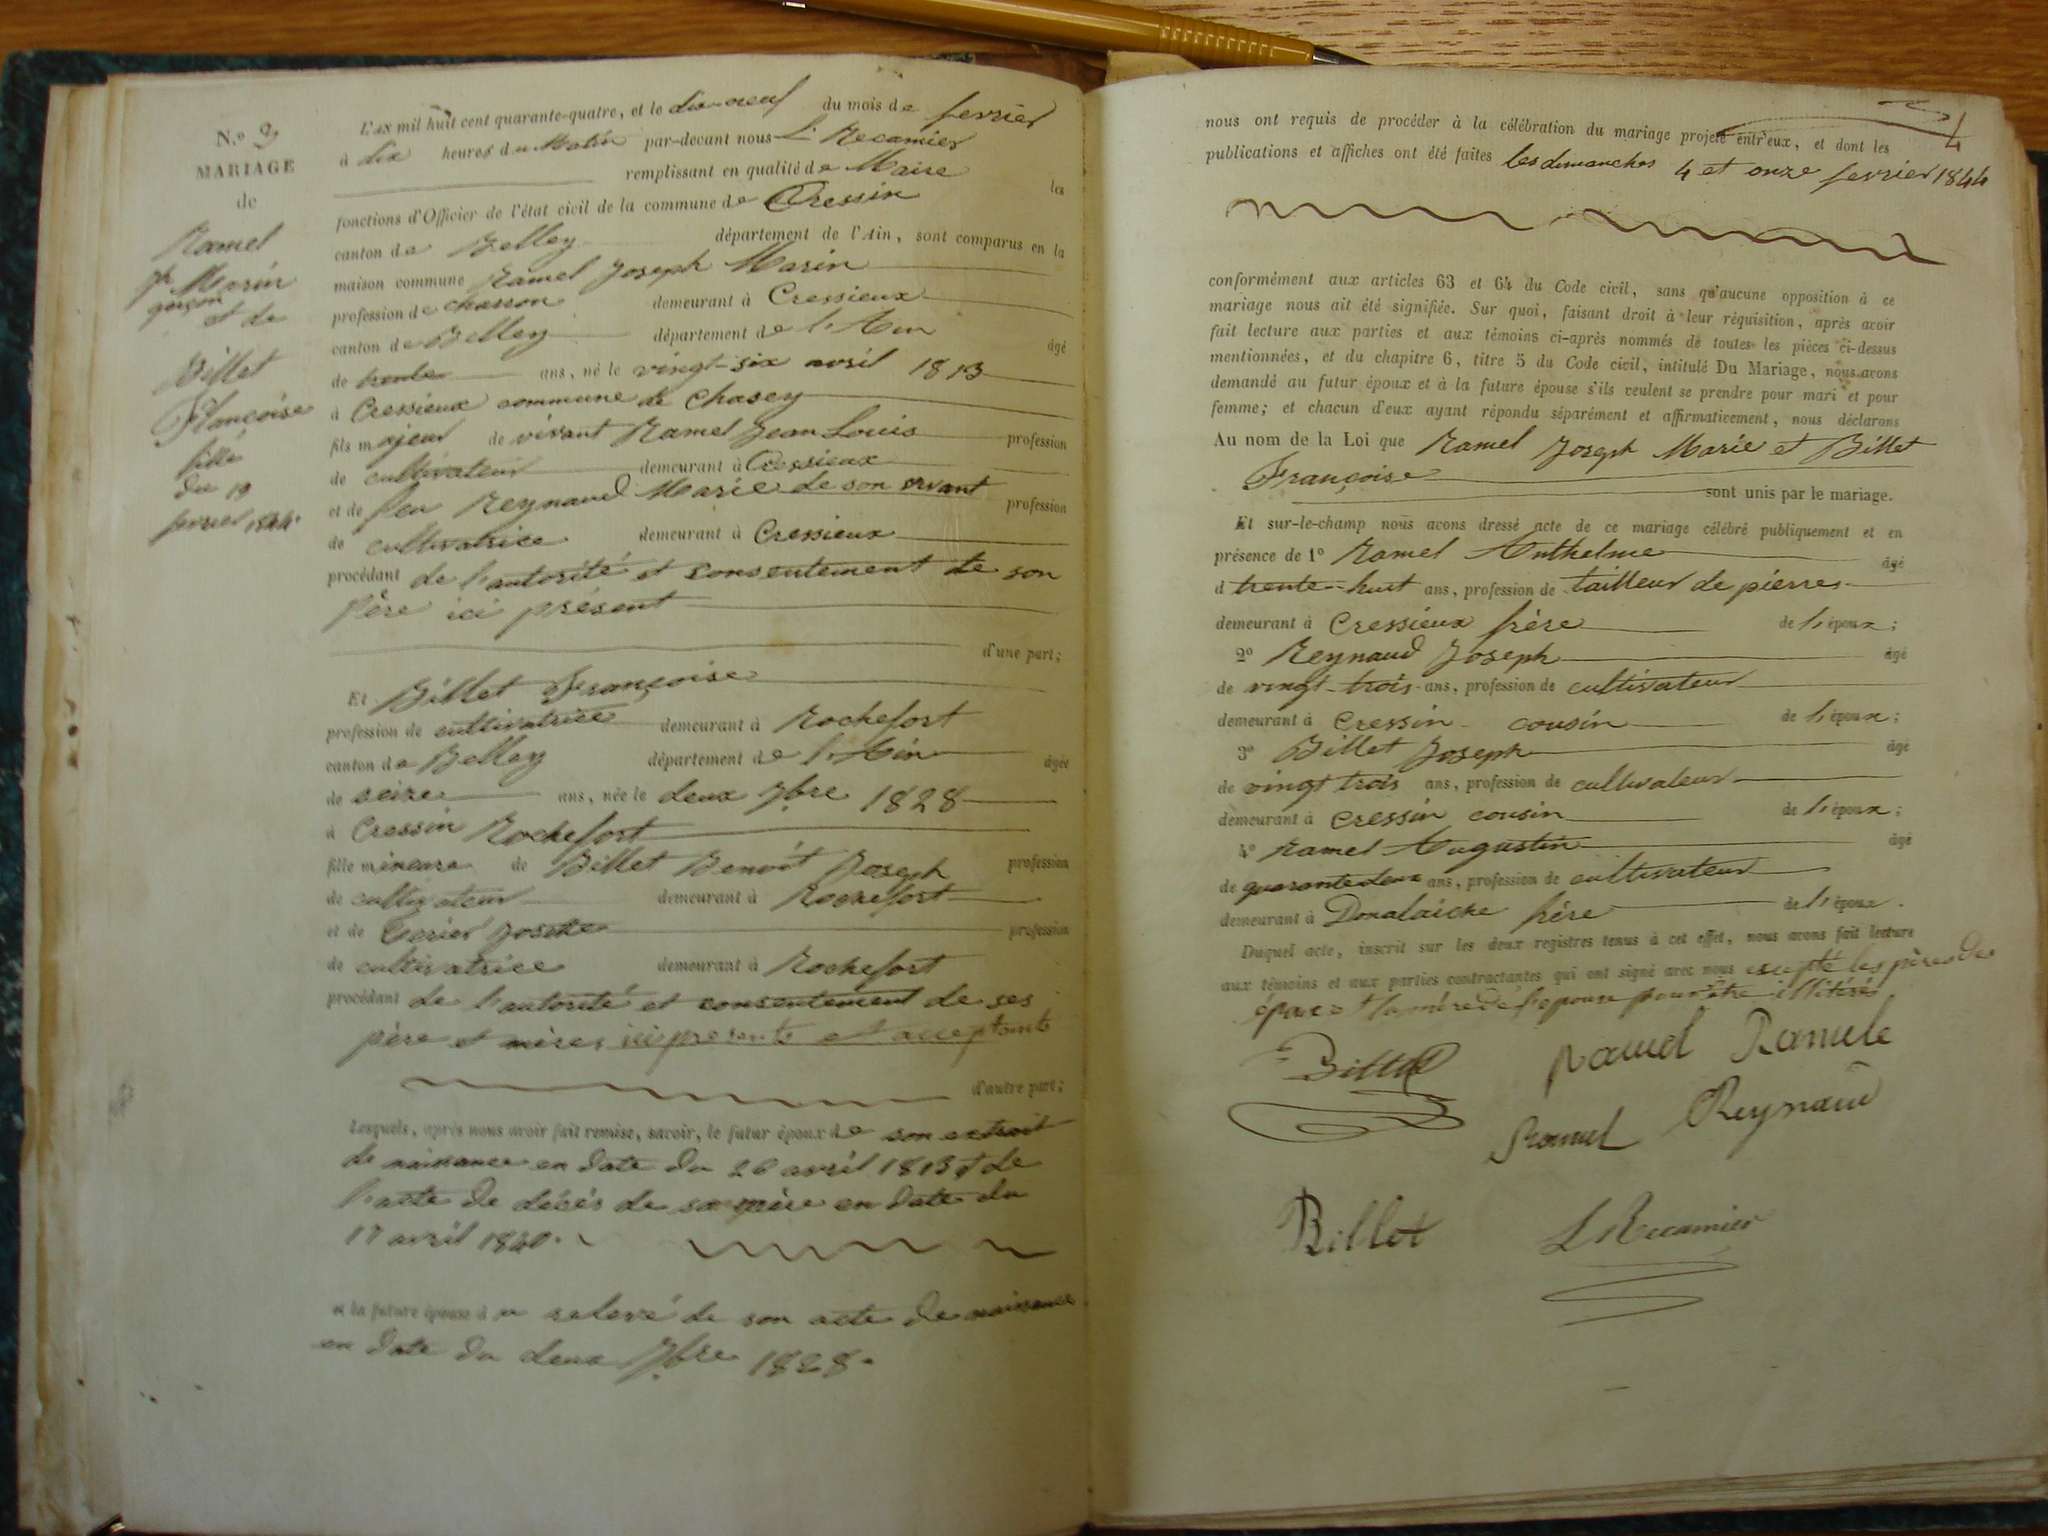 N.º
MARIAGE
de
Ramel
Jh Marin
garçon
et de
Billet
Françoise
fille
du 19
fevrier 1844.
L'AN mil huit cent quarante-quatre, et le dix-neuf du mois de fevrier
à dix heures du Matin par-devant nous L. Recamier
remplissant en qualité de Maire les
fonctions d'Officier de l'état civil de la commune de Cressin
canton de Belley département de l'Ain, sont comparus en la
maison commune Ramel Joseph Marin
profession de charron demeurant à Cressieux
canton de Belley département de l'Ain âgé
de trente ans, né le vingt-six avril 1813
à Cressieux commune de Chasey
fils majeur de vivant Ramel Jean Louis profession
de cultivateur demeurant à Cressieux
et de feu Reynaud Marie de son vivant profession
de cultivatrice demeurant à Cressieux
procédant de l'autorité et consentement de son
Père ici présent
d'une part;
Et Billet Françoise
profession de cultivatrice demeurant à Rochefort
canton de Belley département de l'Ain âgée
de seize ans, née le deux 7bre 1828
à Cressin Rochefort
fille mineure de Billet Benoit Joseph profession
de cultivateur demeurant à Rochefort
et de Josette profession
de cultivatrice demeurant à Rochefort
procédant de l'autorité et consentement de ses
père et mères ici presents et acceptants
d'autre part;
Lesquels, après nous avoir fait remise, savoir, le futur époux de son extrait
de naissance en date du 26 avril 1813 et de
l'acte de décès de sa mère en date du
17 avril 1840.
et la future épouse du relevé de son acte de naissance
en date du deux 7bre 1828.
4
nous ont requis de procéder à la célébration du mariage projeté entr'eux, et dont les
publications et affiches ont été faites les dimanches 4 et onze fevrier 1844
conformément aux articles 63 et 64 du Code civil, sans qu'aucune opposition à ce
mariage nous ait été signifiée. Sur quoi, faisant droit à leur réquisition, après avoir
fait lecture aux parties et aux témoins ci-après nommés de toutes les pièces ci-dessus
mentionnées, et du chapitre 6, titre 5 du Code civil, intitulé Du Mariage, nous avons
demandé au futur époux et à la future épouse s'ils veulent se prendre pour mari et pour
femme; et chacun d'eux ayant répondu séparément et affirmativement, nous déclarons
Au nom de la Loi que Ramel Joseph Marie et Billet
Françoise
sont unis par le mariage.
Et sur-le-champ nous avons dressé acte de ce mariage célébré publiquement et en
présence de 1º Ramel Anthelme âgé
d trente-huit ans, profession de tailleur de pierres
demeurant à Cressieux frère de l'époux;
2º Reynaud Joseph âgé
de vingt-trois ans, profession de cultivateur
demeurant à Cressin cousin de l'époux;
3º Billet Joseph âgé
de vingt trois ans, profession de cultivateur
demeurant à Cressin cousin de l'époux;
4º Ramel Augustin âgé
de quarante deux ans, profession de cultivateur
demeurant à Donalaiche frère de l'époux.
Duquel acte, inscrit sur les deux registres tenus à cet effet, nous avons fait lecture
aux témoins et aux parties contractantes qui ont signé avec nous excepté les pères des
époux et la mère de l'epouse pour être illitérés
Billet Ramel Ramele
Ramel Reynaud
Billet L Recamier